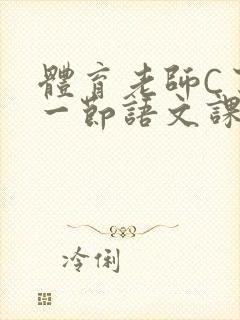 體育老師C
一節語文課
冷俐